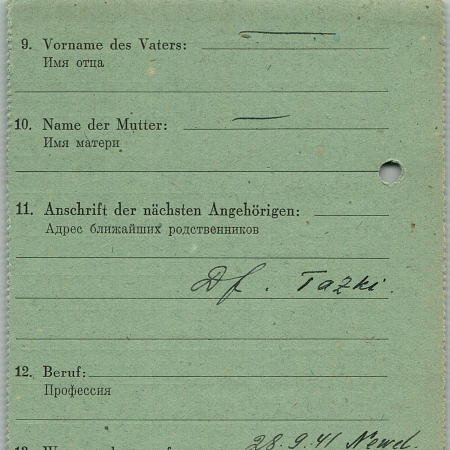 9. Vorname des Vaters:
Имя отца
10. Name der Mutter:
Имя матери
11. Anschrift der nächsten Angehörigen:
Адрес ближайших родственников
Df. Tazki.
12. Beruf:
Профессия
28.9.41 Newel.